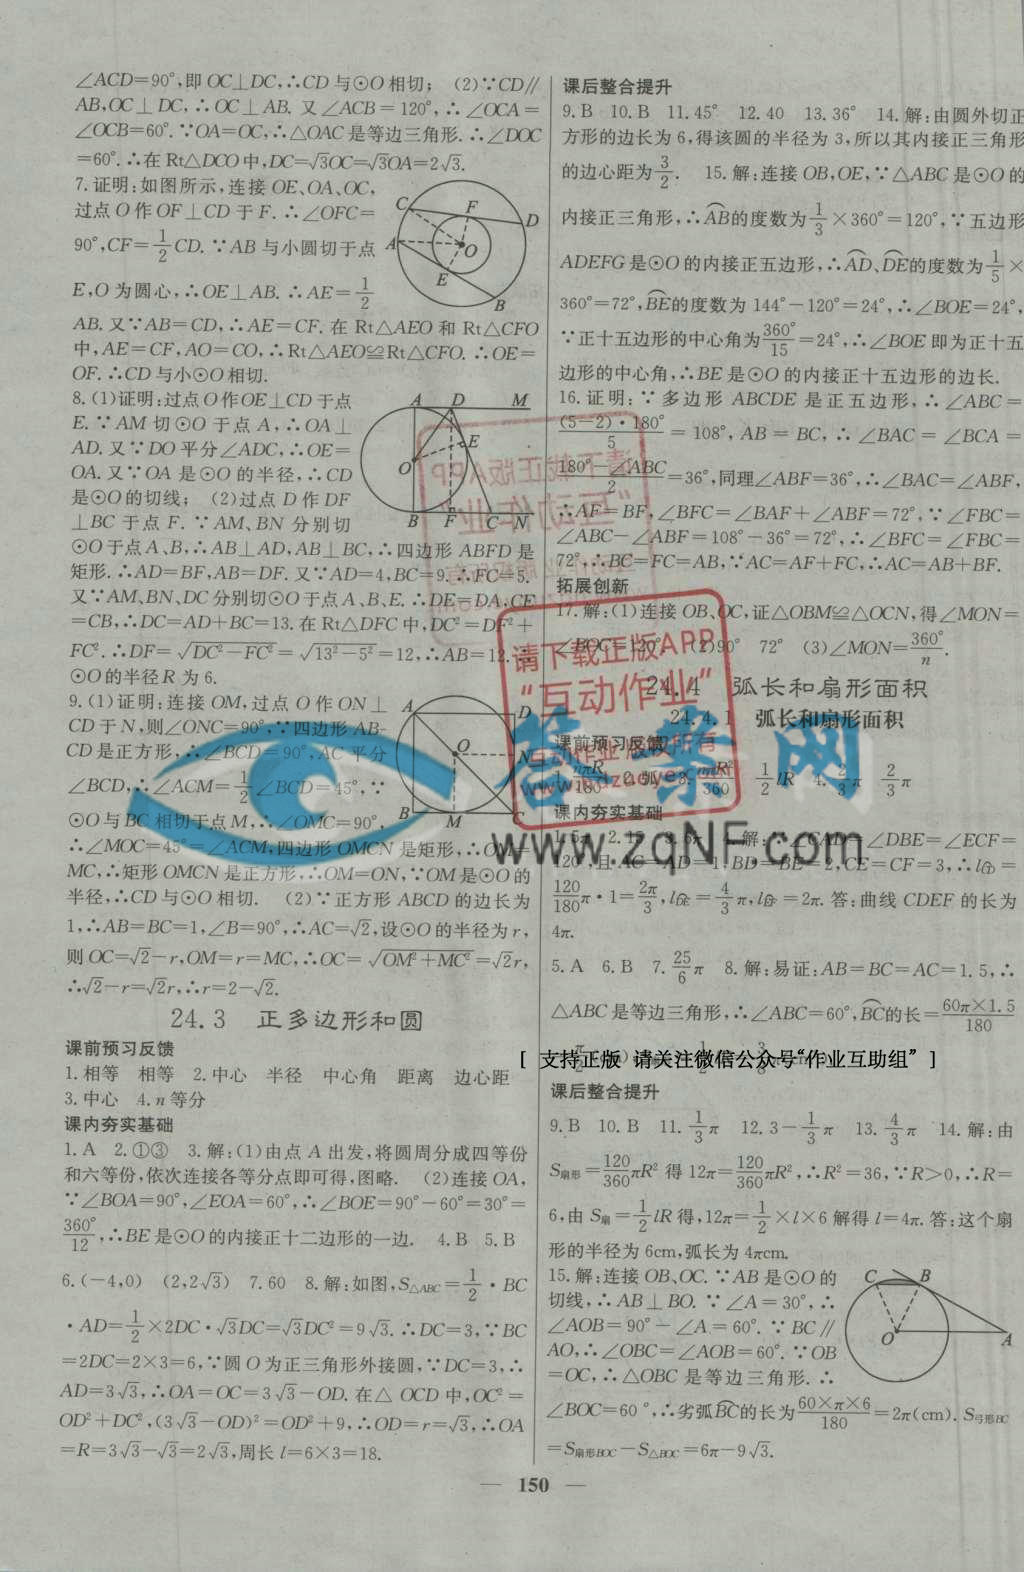 ∠ACD=90°,即OC⊥DC,∴CD与⊙O相切; (2)∵CD∥
AB,OC⊥DC,∴OC⊥AB. 又∠ACB=120°,∴∠OCA=
∠OCB=60°.∵OA=OC,∴△OAC是等边三角形.∴∠DOC
=60°.∴在Rt△DCO中,DC=√3OC=√3OA=2√3.
7.证明:如图所示,连接OE、OA、OC,
过点O作OF⊥CD于F.∴∠OFC=
90°,CF=1/2CD.∵AB与小圆切于点
E,O为圆心,∴OE⊥AB.∴AE=1/2
AB.又∵AB=CD,∴AE=CF.在Rt△AEO和Rt△CFO
中,AE=CF,AO=CO,∴Rt△AEO≌Rt△CFO.∴OE=
OF.∴CD与小⊙O相切.
8.(1)证明:过点O作OE⊥CD于点
E.∵AM切⊙O于点A,∴OA⊥
AD.又∵DO平分∠ADC,∴OE=
OA.又∵OA是⊙O的半径,∴CD
是⊙O的切线; (2)过点D作DF
⊥BC于点F.∵AM、BN分别切
⊙O于点A、B,∴AB⊥AD,AB⊥BC,∴四边形ABFD是
矩形.∴AD=BF,AB=DF.又∵AD=4,BC=9.∴FC=5.
又∵AM、BN、DC分别切⊙O于点A、B、E.∴DE=DA,CE
=CB,∴DC=AD+BC=13.在Rt△DFC中,DC²=DF²+
FC².∴DF=√(DC²-FC²)=√(13²-5²)=12,∴AB=12.∴
⊙O的半径R为6.
9.(1)证明:连接OM,过点O作ON⊥
CD于N,则∠ONC=90°,∵四边形AB-
CD是正方形,∴∠BCD=90°,AC平分
∠BCD,∴∠ACM=1/2∠BCD=45°,∵
⊙O与BC相切于点M,∴∠OMC=90°,
∴∠MOC=45°=∠ACM,四边形OMCN是矩形,∴OM=
MC,∴矩形OMCN是正方形,∴OM=ON,∵OM是⊙O的
半径,∴CD与⊙O相切. (2)∵正方形ABCD的边长为
1,∴AB=BC=1,∠B=90°,∴AC=√2,设⊙O的半径为r,
则OC=√2-r,OM=r=MC,∴OC=√(OM²+MC²)=√2r,
∴√2-r=√2r,∴r=2-√2.
24.3 正多边形和圆
课前预习反馈
1.相等 相等 2.中心 半径 中心角 距离 边心距
3.中心 4.n等分
课内夯实基础
1.A 2.①③ 3.解:(1)由点A出发,将圆周分成四等份
和六等份,依次连接各等分点即可得,图略. (2)连接OA,
∵∠BOA=90°,∠EOA=60°,∴∠BOE=90°-60°=30°=
360°/12,∴BE是⊙O的内接正十二边形的一边. 4.B 5.B
6.(-4,0) (2,2√3) 7.60 8.解:如图,S△ABC=1/2·BC
·AD=1/2×2DC·√3DC=√3DC²=9√3.∴DC=3,∵BC
=2DC=2×3=6,∵圆O为正三角形外接圆,∵DC=3,∴
AD=3√3,∴OA=OC=3√3-OD.在△OCD中,OC²=
OD²+DC²,(3√3-OD)²=OD²+9,∴OD=r=√3,∴OA
=R=3√3-√3=2√3,周长l=6×3=18.
课后整合提升
9.B 10.B 11.45° 12.40 13.36° 14.解:由圆外切正
方形的边长为6,得该圆的半径为3,所以其内接正三角形
的边心距为3/2. 15.解:连接OB,OE,∵△ABC是⊙O的
内接正三角形,∴AB的度数为1/3×360°=120°,∵五边形
ADEFG是⊙O的内接正五边形,∴AD、DE的度数为1/5×
360°=72°,BE的度数为144°-120°=24°,∴∠BOE=24°,
∵正十五边形的中心角为360°/15=24°,∴∠BOE即为正十五
边形的中心角,∴BE是⊙O的内接正十五边形的边长.
16.证明:∵多边形ABCDE是正五边形,∴∠ABC=
(5-2)·180°/5=108°,AB=BC,∴∠BAC=∠BCA=
180°-∠ABC/2=36°,同理∠ABF=36°,∴∠BAC=∠ABF,
∴AF=BF,∠BFC=∠BAF+∠ABF=72°,∵∠FBC=
∠ABC-∠ABF=108°-36°=72°,∴∠BFC=∠FBC=
72°,∴BC=FC=AB,∵AC=AF+FC,∴AC=AB+BF.
拓展创新
17.解:(1)连接OB、OC,证△OBM≌△OCN,得∠MON=
∠BOC=120° (2)90° 72° (3)∠MON=360°/n.
24.4 弧长和扇形面积
24.4.1 弧长和扇形面积
课前预习反馈
1.nπR/180 2.弧 3.nπR²/360 1/2lR 4.2/3π 2/3π
课内夯实基础
∠DBE=∠ECF=
120/180π·1=2π/3,l=4/3π,l=2π.答:曲线CDEF的长为
4π.
5.A 6.B 7.25/6π 8.解:易证:AB=BC=AC=1.5,∴
△ABC是等边三角形,∴∠ABC=60°,BC的长=60π×1.5/180
[ 支持正版 请关注微信公众号“作业互助组” ]
课后整合提升
9.B 10.B 11.1/3π 12.3-1/3π 13.4/3π 14.解:由
S扇形=120/360πR²得12π=120/360πR²,∴R²=36,∵R>0,∴R=
6,由S扇=1/2lR得,12π=1/2×l×6解得l=4π.答:这个扇
形的半径为6cm,弧长为4πcm.
15.解:连接OB、OC.∵AB是⊙O的
切线,∴AB⊥BO.∵∠A=30°,∴
∠AOB=90°-∠A=60°.∵BC∥
AO,∴∠OBC=∠AOB=60°.∵OB
=OC,∴△OBC是等边三角形.∴
∠BOC=60°,∴劣弧BC的长为60×π×6/180=2π(cm).S弓形BC
=S扇形BOC-S△BOC=6π-9√3.
— 150 —
请下载正版APP
“互动作业”
答案网
www.zqNF.com